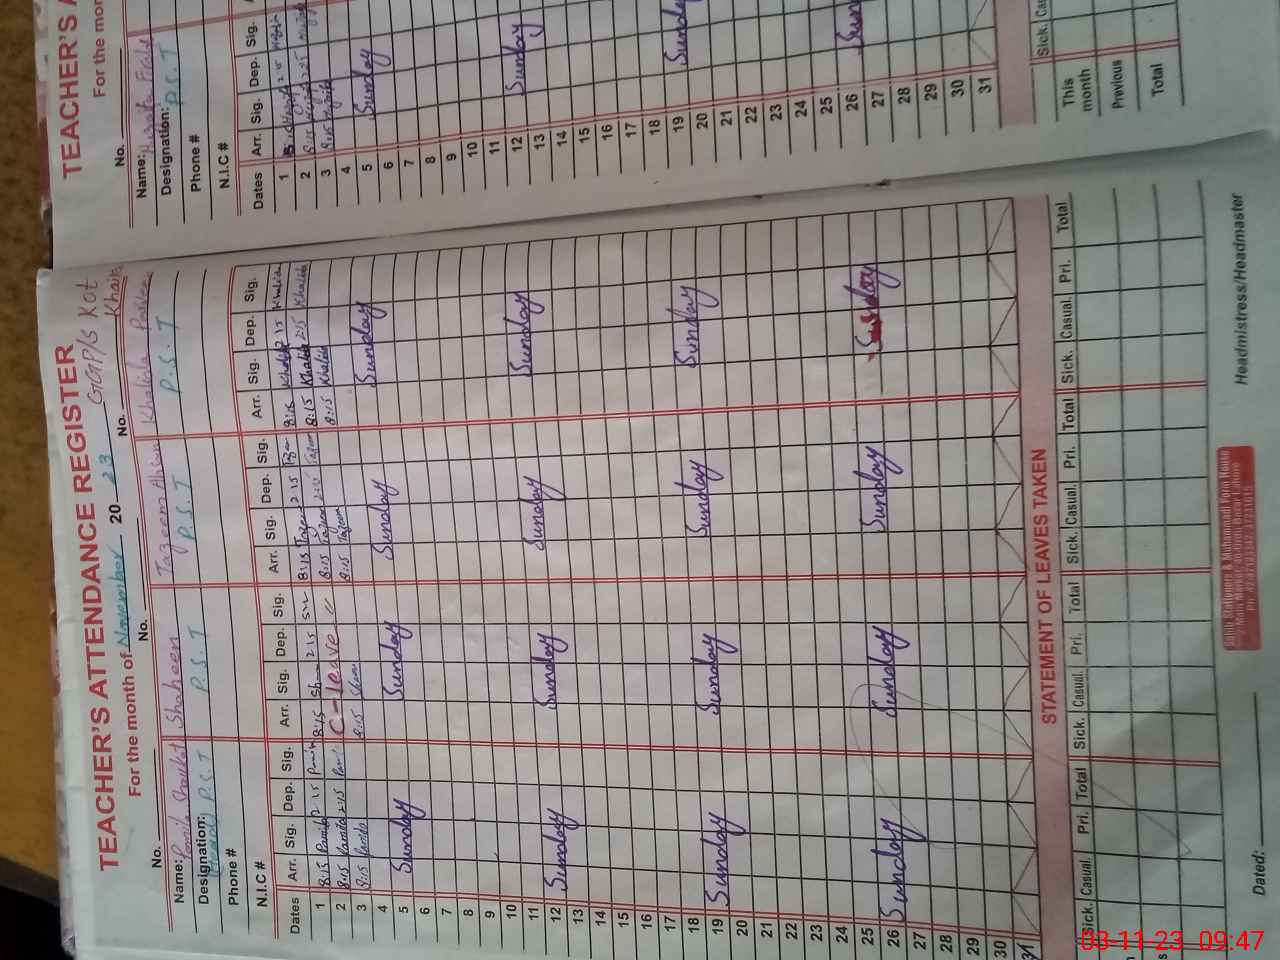 TEACHER'S ATTENDANCE REGISTER
For the month of November 20 23 GGP/S Kot Khair
No. No. No.
Name: Pamila Shoukat Shaheen Tazeem Akhtar Khalida Parveen
Designation: Head P.S.T P.S.T P.S.T P.S.T
Phone #
N.I.C #
Dates Arr. Sig. Dep. Sig. Arr. Sig. Dep. Sig. Arr. Sig. Dep. Sig. Arr. Sig. Dep. Sig.
1 8:15 Pamila 2:15 8:15 2:15 8:15 Tazeem 2:15 8:15 Khalida 2:15 Khalida
2 8:15 Pamila 2:15 C-leave 8:15 Tazeem 8:15 Khalida 2:15 Khalida
3 8:15 Pamila 8:15 8:15 Tazeem 8:15 Khalida
4
5 Sunday Sunday Sunday Sunday
6
7
8
9
10
11
12 Sunday Sunday Sunday Sunday
13
14
15
16
17
18
19 Sunday Sunday Sunday Sunday
20
21
22
23
24
25
26 Sunday Sunday Sunday Sunday
27
28
29
30
31
STATEMENT OF LEAVES TAKEN
Sick. Casual. Pri. Total Sick. Casual. Pri. Total Sick. Casual. Pri. Total Sick. Casual. Pri. Total
Dated:
Headmistress/Headmaster
TEACHER'S A
For the mon
No.
Name:
Designation: P.S.T
Phone #
N.I.C #
Dates Arr. Sig. Dep. Sig.
1
2 8:15 2:15
3 8:15
4
5 Sunday
6
7
8
9
10
11
12 Sunday
13
14
15
16
17
18
19 Sunday
20
21
22
23
24
25
26 Sun
27
28
29
30
31
Sick. Cas
This month
Previous
Total
03-11-23 09:47